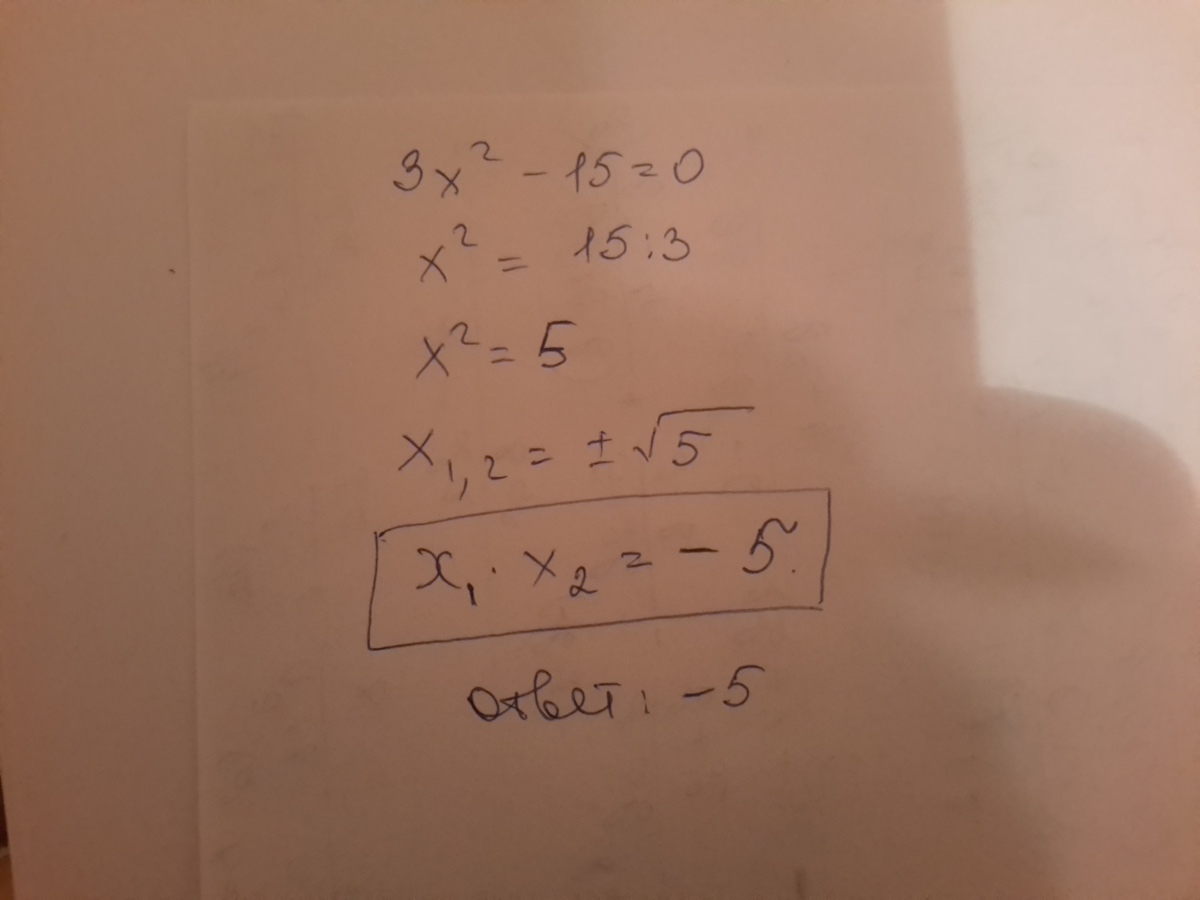 3x² - 15 = 0
x² = 15:3
x² = 5
x₁,₂ = ±√5
x₁ · x₂ = - 5.
ответ: -5